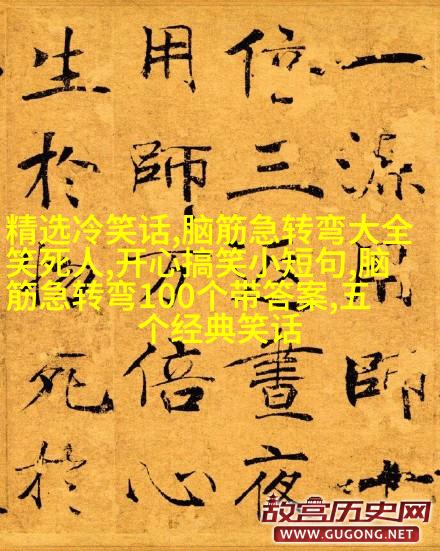 一源用師十
倍三返晝夜
用師万倍心
生於物死於
精选冷笑话,脑筋急转弯大全
笑死人,开心搞笑小短句,脑
筋急转弯100个带答案,五
个经典笑话
故宫历史网
WWW.GUGONG.NET